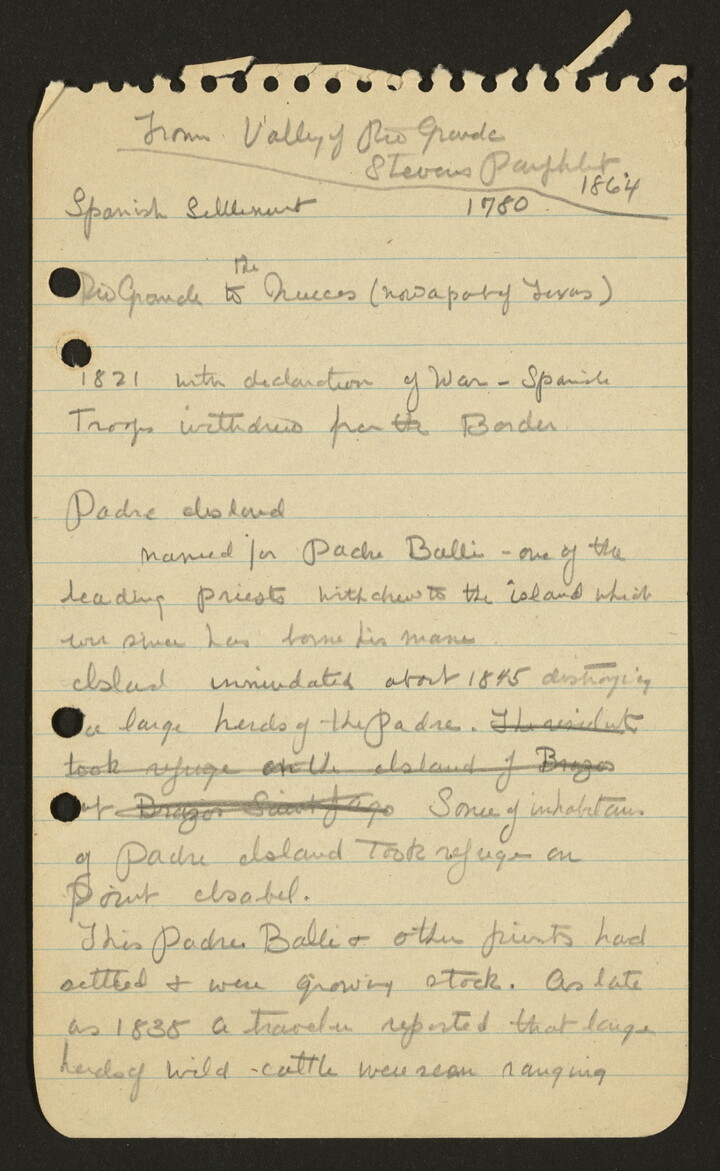 From Valley of Rio Grande
Stevens Pamphlet
1864
Spanish Settlement 1780
the
Rio Grande to Nueces (now a part of Texas)
1821 with declaration of War - Spanish
Troops withdrew from the Border
Padre Island
named for Padre Balli - one of the
leading priests withdrew to the island which
ever since has borne his name
Island innundated about 1845 destroying
large herds of the Padre. The residents
took refuge on the Island of Brazos
at Brazos Santiago Some of inhabitans
of Padre Island Took refuge on
Point Isabel.
This Padre Balli & other priests had
settled & were growing stock. As late
as 1838 a traveler reported that large
herds of wild-cattle were seen ranging